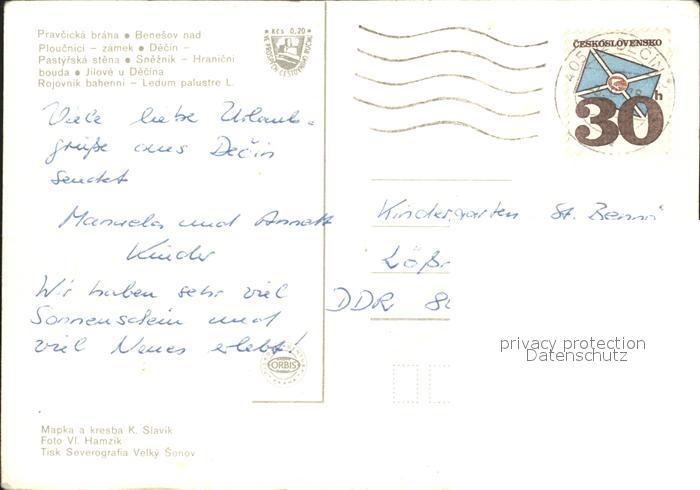 Pravčická brána ● Benešov nad
Ploučnicí – zámek ● Děčín –
Pastýřská stěna ● Sněžník – Hraniční
bouda ● Jílové u Děčína
Rojovník bahenní – Ledum palustre L.
Kčs 0,20
ČESKOSLOVENSKO
30h
Viele liebe Urlaubs-
grüße aus Dečín
sendet
Manuela und Annett
Kinder
Wir haben sehr viel
Sonnenschein und
viel Neues erlebt!
Kindergarten St. Benno
Lößn
DDR 80
privacy protection
Datenschutz
ORBIS
Mapka a kresba K. Slavík
Foto Vl. Hamzík
Tisk Severografia Velký Šenov